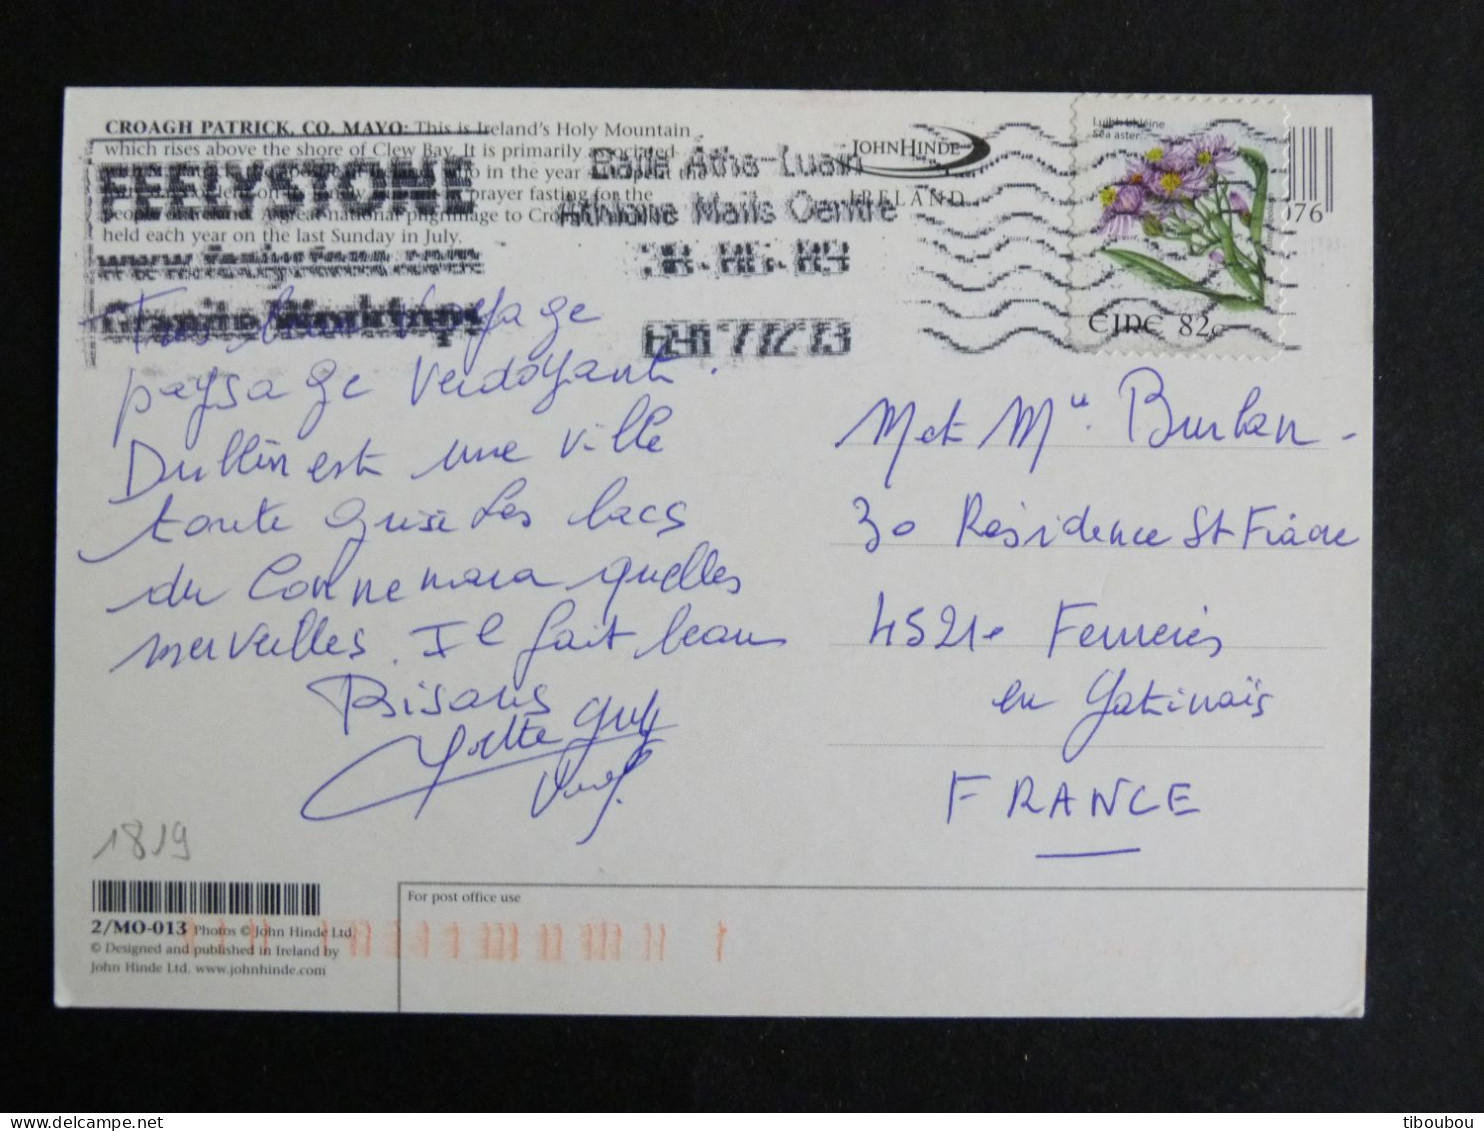 CROAGH PATRICK, CO. MAYO: This is Ireland's Holy Mountain
which rises above the shore of Clew Bay. It is primarily associated
in the year
prayer fasting for the
people of Ireland. A great national pilgrimage to
held each year on the last Sunday in July.
FEELYSTONE
Granite Worktops
Baile Átha-Luain
Athlone Mails Centre
JOHN HINDE
IRELAND
Sea aster
ÉIRE 82c
076
Tres beau Voyage
paysage Verdoyant.
Dublin est une ville
toute grise Les lacs
du Connemara quelles
merveilles. Il fait beau
Bisous
Yvette Guy
M et Mme Burlan
30 Résidence St Fiacre
45210 Ferrieres
en Gatinais
FRANCE
1819
For post office use
2/MO-013 Photos © John Hinde Ltd.
© Designed and published in Ireland by
John Hinde Ltd. www.johnhinde.com
tiboubou